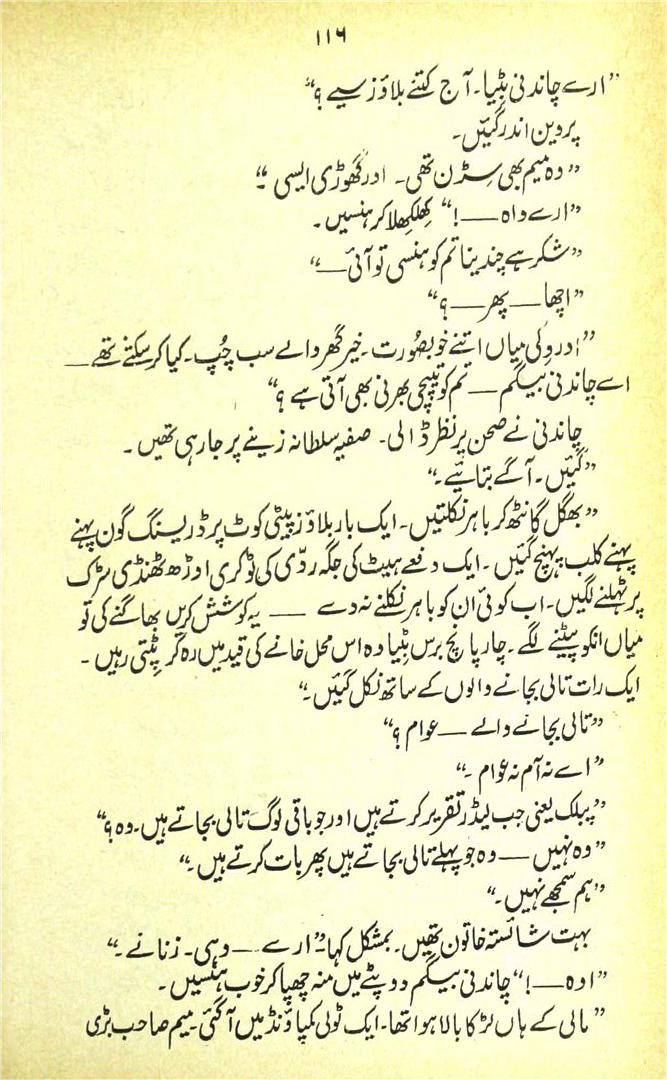 ۱۱۶
”ارے چاندنی بٹیا۔ آج کتنے بلاؤز سیے ؟“
پروین اندر گئیں۔
”وہ میم بھی سڑن تھی۔ اور گھوڑی ایسی ۔“
”ارے واہ ——!“ کھلکھلا کر ہنسیں۔
”شکر ہے چندینا تم کو ہنسی تو آئی——“
”اچھا —— پھر —— ؟“
”اور وکی میاں اتنے خوبصورت۔ خیر گھر والے سب چُپ۔ کیا کر سکتے تھے ——
اے چاندنی بیگم —— تم کو تیپچی بھرنی بھی آتی ہے ؟“
چاندنی نے صحن پر نظر ڈالی۔ صفیہ سلطانہ زینے پر جا رہی تھیں۔
”گئیں۔ آگے بتائیے۔“
”بھگل گانٹھ کر باہر نکلتیں۔ ایک بار بلاؤز پیٹی کوٹ پر ڈریسنگ گون پہنے
پہنے کلب پہنچ گئیں۔ ایک دفعے ہیٹ کی جگہ ردّی کی ٹوکری اوڑھ ٹھنڈی سڑک
پر ٹہلنے لگیں۔ اب کوئی ان کو باہر نکلنے نہ دے —— یہ کوشش کریں بھاگنے کی تو
میاں انکو پیٹنے لگے۔ چار پانچ برس بٹیا وہ اس محل خانے کی قید میں رہ کر پٹتی رہیں۔
ایک رات تالی بجانے والوں کے ساتھ نکل گئیں۔“
”تالی بجانے والے —— عوام ؟“
”اے نہ آم نہ عوام ۔“
”پبلک یعنی جب لیڈر تقریر کرتے ہیں اور جو باقی لوگ تالی بجاتے ہیں۔ وہ ؟“
”وہ نہیں —— وہ جو پہلے تالی بجاتے ہیں پھر بات کرتے ہیں۔“
”ہم سمجھے نہیں۔“
بہت شائستہ خاتون تھیں۔ بمشکل کہا۔ ”ارے —— وہی۔ زنانے ۔“
”اوہ ——!“ چاندنی بیگم دوپٹے میں منہ چھپا کر خوب ہنسیں۔
”مالی کے ہاں لڑکا بالا ہوا تھا۔ ایک ٹولی کمپاؤنڈ میں آ گئی۔ میم صاحب بڑی